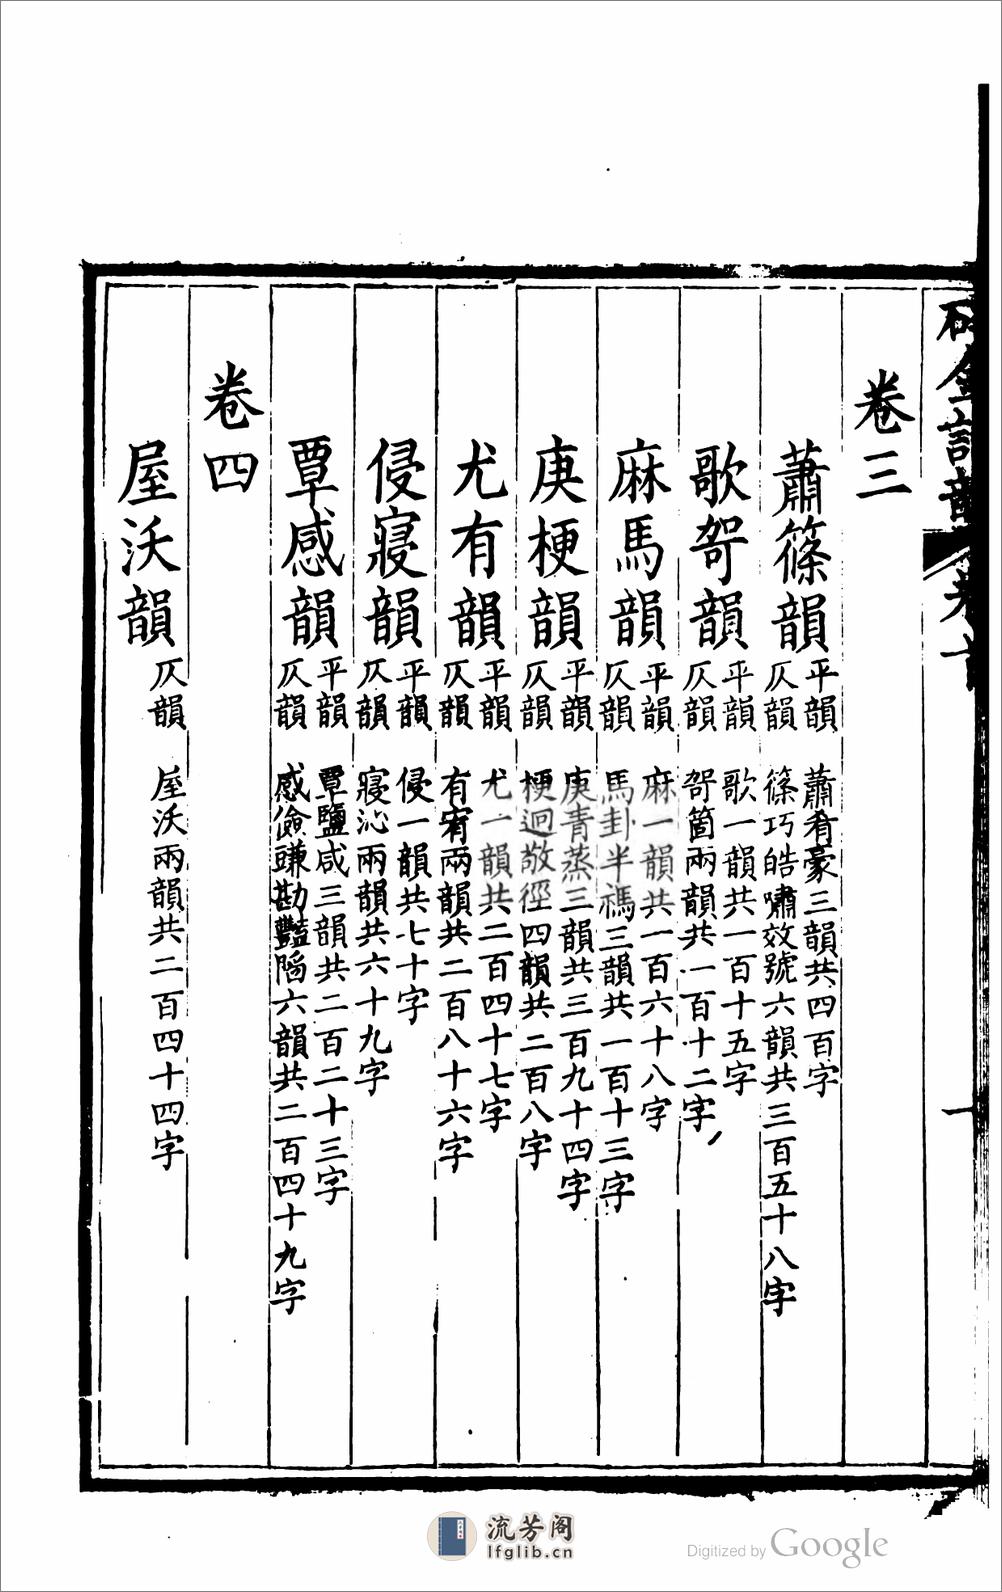 碎金詞韻 卷首
一
卷三
蕭篠韻 平韻 蕭肴豪三韻共四百字
仄韻 篠巧皓嘯效號六韻共三百五十八字
歌哿韻 平韻 歌一韻共一百十五字
仄韻 哿箇兩韻共一百十二字
麻馬韻 平韻 麻一韻共一百六十八字
仄韻 馬卦半禡三韻共一百十三字
庚梗韻 平韻 庚青蒸三韻共三百九十四字
仄韻 梗迥敬徑四韻共二百八字
尤有韻 平韻 尤一韻共二百四十七字
仄韻 有宥兩韻共二百八十六字
侵寢韻 平韻 侵一韻共七十字
仄韻 寢沁兩韻共六十九字
覃感韻 平韻 覃鹽咸三韻共二百二十三字
仄韻 感儉豏勘豔陷六韻共二百四十九字
卷四
屋沃韻 仄韻 屋沃兩韻共二百四十四字
流芳阁
lfglib.cn
Digitized by Google